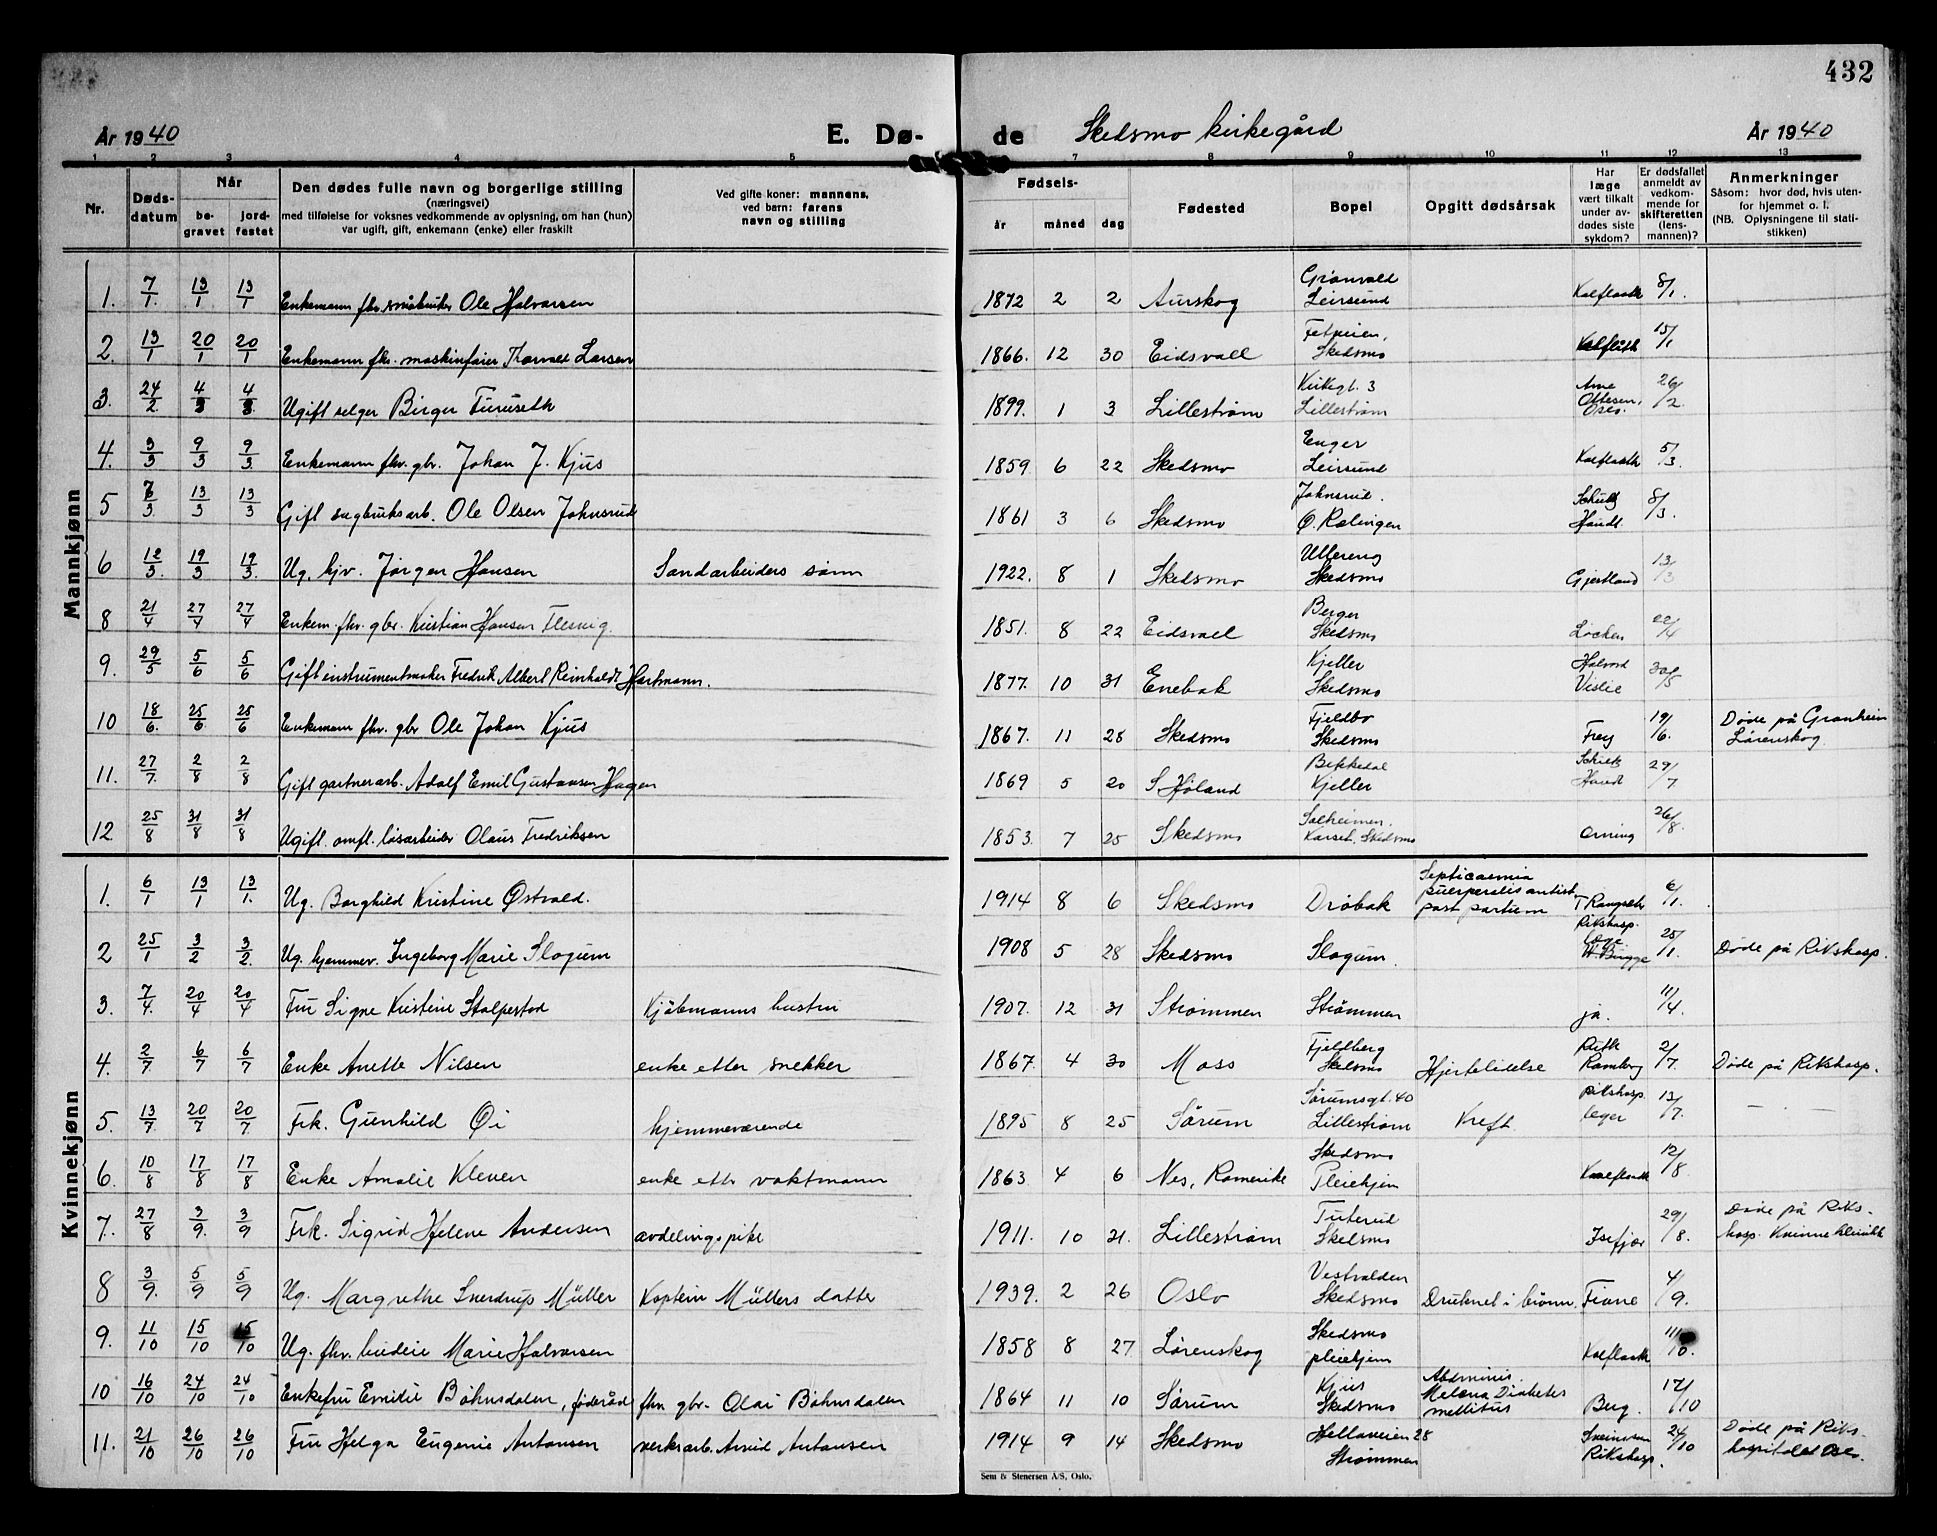 432
År 1940 E. Dø- de Skedsmo kirkegård År 1940
1 2 3 4 5 7 8 9 10 11 12 13
Nr.
Døds-
datum
Når
be-
gravet
jord-
festet
Den dødes fulle navn og borgerlige stilling
(næringsvei)
med tilføielse for voksnes vedkommende av oplysning, om han (hun)
var ugift, gift, enkemann (enke) eller fraskilt
Ved gifte koner: mannens,
ved børn: farens
navn og stilling
Fødsels-
år måned dag
Fødested
Bopel
Opgitt dødsårsak
Har
læge
vært tilkalt
under av-
dødes siste
sykdom?
Er dødsfallet
anmeldt av
vedkom-
mende for
skifteretten
(lens-
mannen)?
Anmerkninger
Såsom: hvor død, hvis uten-
for hjemmet o. l.
(NB. Oplysningene til stati-
stikken)
Mannkjønn
1. 7/1. 13/1 13/1 Enkemann fhv. småbruker Ole Halvorsen 1872 2 2 Aurskog Grønvold Leirsund Kalfloath 8/1.
2. 13/1 20/1 20/1 Enkemann fhv. maskinfører Torvald Larsen 1866. 12 30 Eidsvoll Fetveien, Skedsmo 15/1
3. 24/2 4/3 4/3. Ugift selger Birger Furuseth 1899. 1 3 Lillestrøm Kirkegt. 3 Lillestrøm Arne Ottesen, Oslo. 26/2.
4. 3/3 9/3 9/3. Enkemann fhv. gbr. Johan J. Kjus 1859 6 22 Skedsmo Enger Leirsund Kalfloath 5/3.
5 7/3 13/3 13/3 Gift sagbruksarb. Ole Olsen Johnsrud 1861 3 6 Skedsmo Johnsrud. Ø. Rælingen 8/3.
6 12/3. 19/3 19/3. Ug. hjv. Jørgen Hansen Sandarbeiders sønn 1922. 8 1 Skedsmo Ullereng Skedsmo Gjestland 13/3
8 21/4 27/4 27/4 Enkem. fhv. gbr. Kristian Hansen 1851. 8 22 Eidsvoll Berger Skedsmo Løcken 22/4
9. 29/5 5/6 5/6 Gift instrumentmaker Fredrik Albert Reinholdt Hartmann. 1877. 10 31 Enebak Kjeller Skedsmo Halvord Vislie 30/5
10 18/6. 25/6 25/6 Enkemann fhv. gbr Ole Johan Kjus 1867. 11 28 Skedsmo Fjeldbo Skedsmo Frey 19/6. Døde på Granheim Lørenskog.
11. 27/7. 2/8 2/8 Gift gartnerarb. Adolf Emil Gustavsen Hagen 1869 5 20 S. Høland Kjeller 29/7
12 25/8 31/8 31/8 Ugift. omfl. løsarbeider Olaus Fredriksen 1853. 7 25 Skedsmo Solheimen. Skedsmo Orning 26/8.
Kvinnekjønn
1. 6/1 13/1 13/1. Ug. Borghild Kristine Østvold. 1914 8 6 Skedsmo Drøbak Septicaemia puerperalis post partum T Rangseth 6/1.
2 25/1 3/2 3/2. Ug. hjemmev. Ingeborg Marie Slogum 1908 5 28 Skedsmo Slogum. Rikshosp. 25/1. Døde på Rikshosp.
3. 7/4. 20/4 20/4 Fru Signe Kristine Stolpestad Kjøbmanns hustru 1907. 12 31 Strømmen Strømmen ja. 11/4.
4. 2/7 6/7 6/7 Enke Anette Nilsen enke etter snekker 1867. 4 30 Moss Fjeldberg Skedsmo Hjertelidelse Ruth Ramberg 2/7. Døde på Rikshosp.
5. 13/7. 20/7 20/7. Frk. Gunhild Øi hjemmeværende 1895 8 25 Sørum Sørumsgt. 40 Lillestrøm Kreft. Rikshosp. leger 13/7. — —
6. 10/8 17/8 17/8 Enke Amalie Kleven enke ettr vaktmann 1863 4 6 Nes, Romerike Skedsmo Pleiehjem Kalfloath 12/8
7. 27/8 3/9. 3/9 Frk. Sigrid Helene Andersen avdelingspike 1911. 10 21. Lillestrøm Tuterud Skedsmo Isefjær 29/8. Døde på Riks-hosp. Kvinneklinikk
8 3/9. 5/9 5/9 Ug. Margrethe Sverdrup Müller Kaptein Müllers datter 1939. 2 26 Oslo Vestvolden Skedsmo Druknet i brønn. Fiane 4/9.
9. 11/10 15/10 15/10 Ug. fhv. budeie Marie Halvorsen 1858 8 27 Lørenskog Skedsmo pleiehjem Kalfloath 11/10.
10 16/10 24/10 24/10 Enkefru Emilie Bøhnsdalen, føderåd fhv gbr. Olai Bøhnsdalen 1864 11 10 Sørum Kjus Skedsmo Melena Diabetes mellitus Berg. 17/10
11. 21/10 26/10 26/10 Fru Helga Eugenie Antonsen verksarb. Arvid Antonsen 1914 9 14 Skedsmo Hellaveien 28 Strømmen Rikshosp. 24/10 Døde på Riks-hospitalet Oslo.
Sem & Stenersen A/S, Oslo.